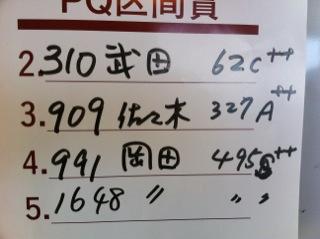 PQ区間賞
2.310 武田 62C++
3.909 佐々木 327A++
4.991 岡田 495S++
5.1648 〃 〃 〃